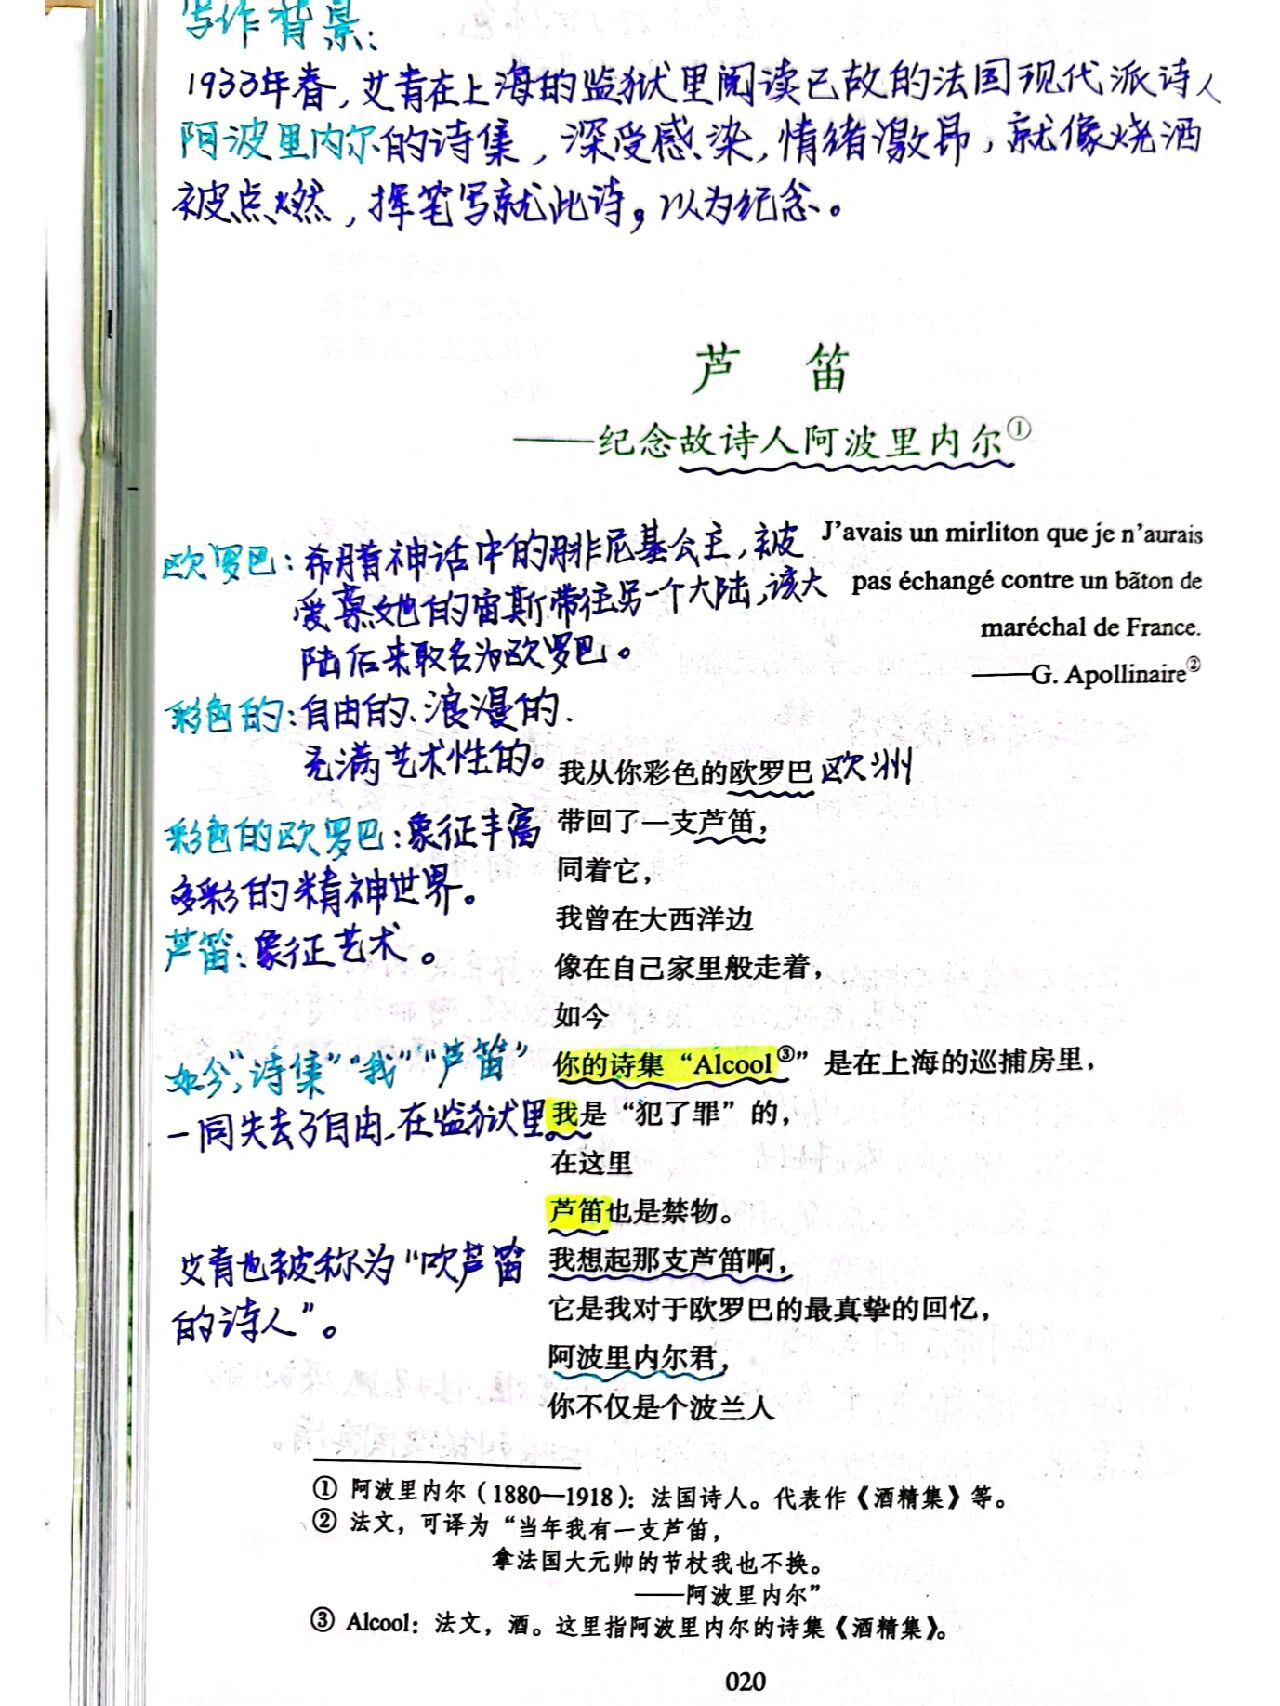 写作背景:
1933年春,艾青在上海的监狱里阅读已故的法国现代派诗人
阿波里内尔的诗集,深受感染,情绪激昂,就像烧酒
被点燃,挥笔写就此诗,以为纪念。
芦 笛
——纪念故诗人阿波里内尔①
J'avais un mirliton que je n'aurais
pas échangé contre un bāton de
maréchal de France.
——G. Apollinaire②
欧罗巴:希腊神话中的腓尼基公主,被
爱慕她的宙斯带往另一个大陆,该大
陆后来取名为欧罗巴。
彩色的:自由的、浪漫的、
充满艺术性的。
彩色的欧罗巴:象征丰富
多彩的精神世界。
芦笛:象征艺术。
如今,“诗集”“我”“芦笛”
一同失去了自由,在监狱里。
艾青也被称为“吹芦笛
的诗人”。
我从你彩色的欧罗巴 欧洲
带回了一支芦笛,
同着它,
我曾在大西洋边
像在自己家里般走着,
如今
你的诗集“Alcool③”是在上海的巡捕房里,
我是“犯了罪”的,
在这里
芦笛也是禁物。
我想起那支芦笛啊,
它是我对于欧罗巴的最真挚的回忆,
阿波里内尔君,
你不仅是个波兰人
① 阿波里内尔(1880—1918):法国诗人。代表作《酒精集》等。
② 法文,可译为“当年我有一支芦笛,
拿法国大元帅的节杖我也不换。
——阿波里内尔”
③ Alcool:法文,酒。这里指阿波里内尔的诗集《酒精集》。
020